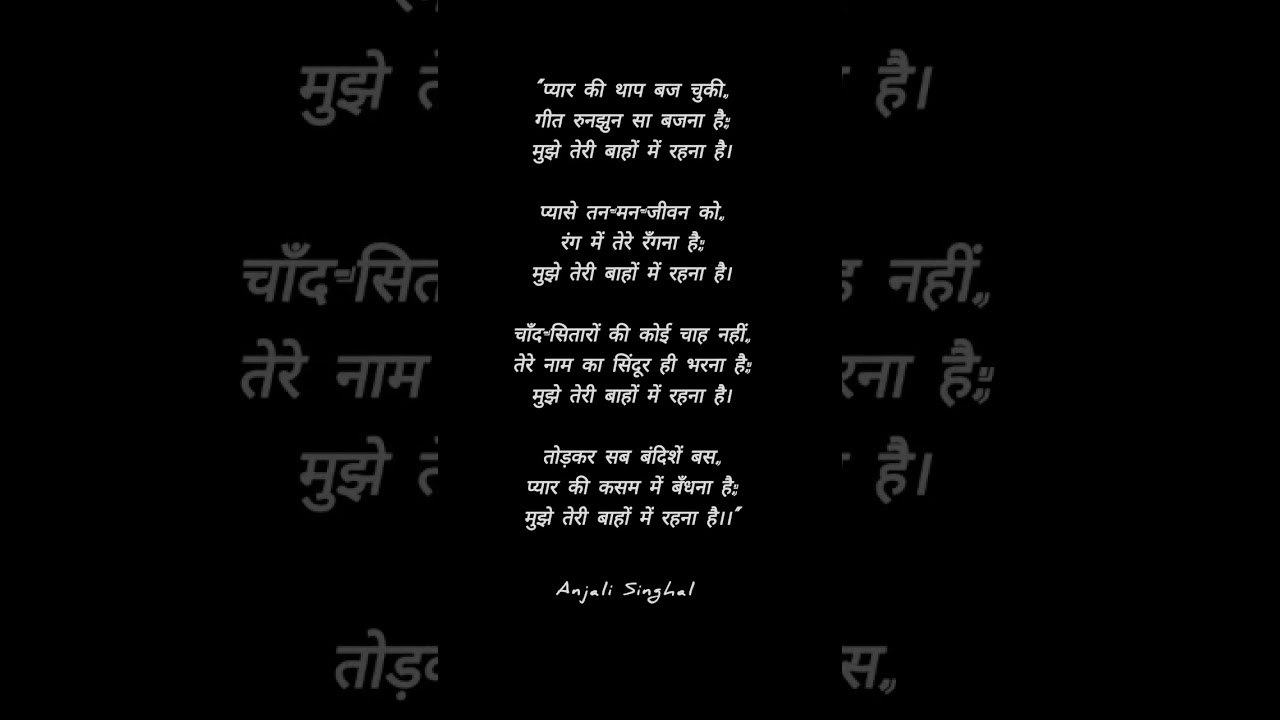 "प्यार की थाप बज चुकी,,
गीत रुनझुन सा बजना है;;
मुझे तेरी बाहों में रहना है।
प्यासे तन-मन-जीवन को,,
रंग में तेरे रँगना है;;
मुझे तेरी बाहों में रहना है।
चाँद-सितारों की कोई चाह नहीं,,
तेरे नाम का सिंदूर ही भरना है;;
मुझे तेरी बाहों में रहना है।
तोड़कर सब बंदिशें बस,,
प्यार की कसम में बँधना है;;
मुझे तेरी बाहों में रहना है।।"
Anjali Singhal